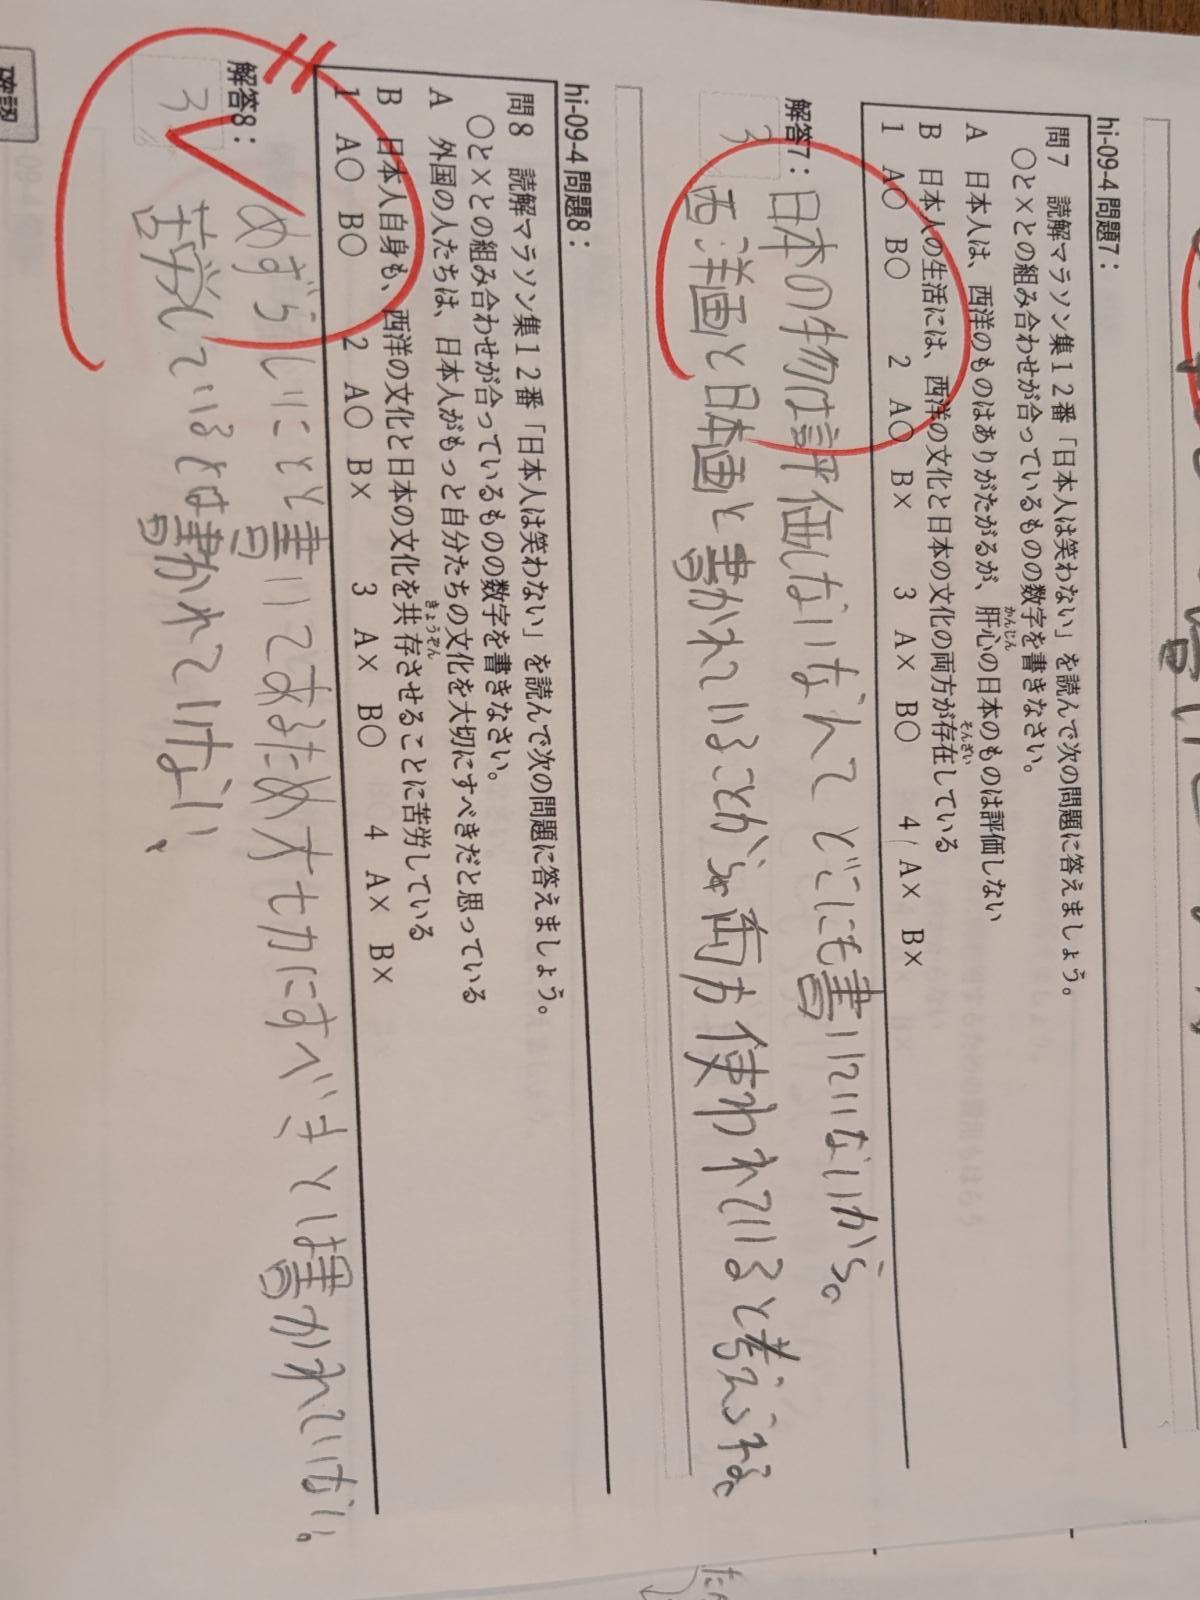 hi-09-4 問題7：
問7　読解マラソン集12番「日本人は笑わない」を読んで次の問題に答えましょう。
○と×との組み合わせが合っているものの数字を書きなさい。
A　日本人は、西洋のものはありがたがるが、肝心の日本のものは評価しない
かんじん
B　日本人の生活には、西洋の文化と日本の文化の両方が存在している
そんざい
1　A○　B○　　2　A○　B×　　3　A×　B○　　4　A×　B×
解答7：
3
日本の物は評価しないなんてどこにも書いていないから。
西洋画と日本画と書かれていることから両方使われていると考えられる
hi-09-4 問題8：
問8　読解マラソン集12番「日本人は笑わない」を読んで次の問題に答えましょう。
○と×との組み合わせが合っているものの数字を書きなさい。
A　外国の人たちは、日本人がもっと自分たちの文化を大切にすべきだと思っている
B　日本人自身も、西洋の文化と日本の文化を共存させることに苦労している
きょうぞん
1　A○　B○　　2　A○　B×　　3　A×　B○　　4　A×　B×
解答8：
3
めずらしいこと書いてあるため大切にすべきとは書かれていない。
苦労しているとは書かれていない、
確認